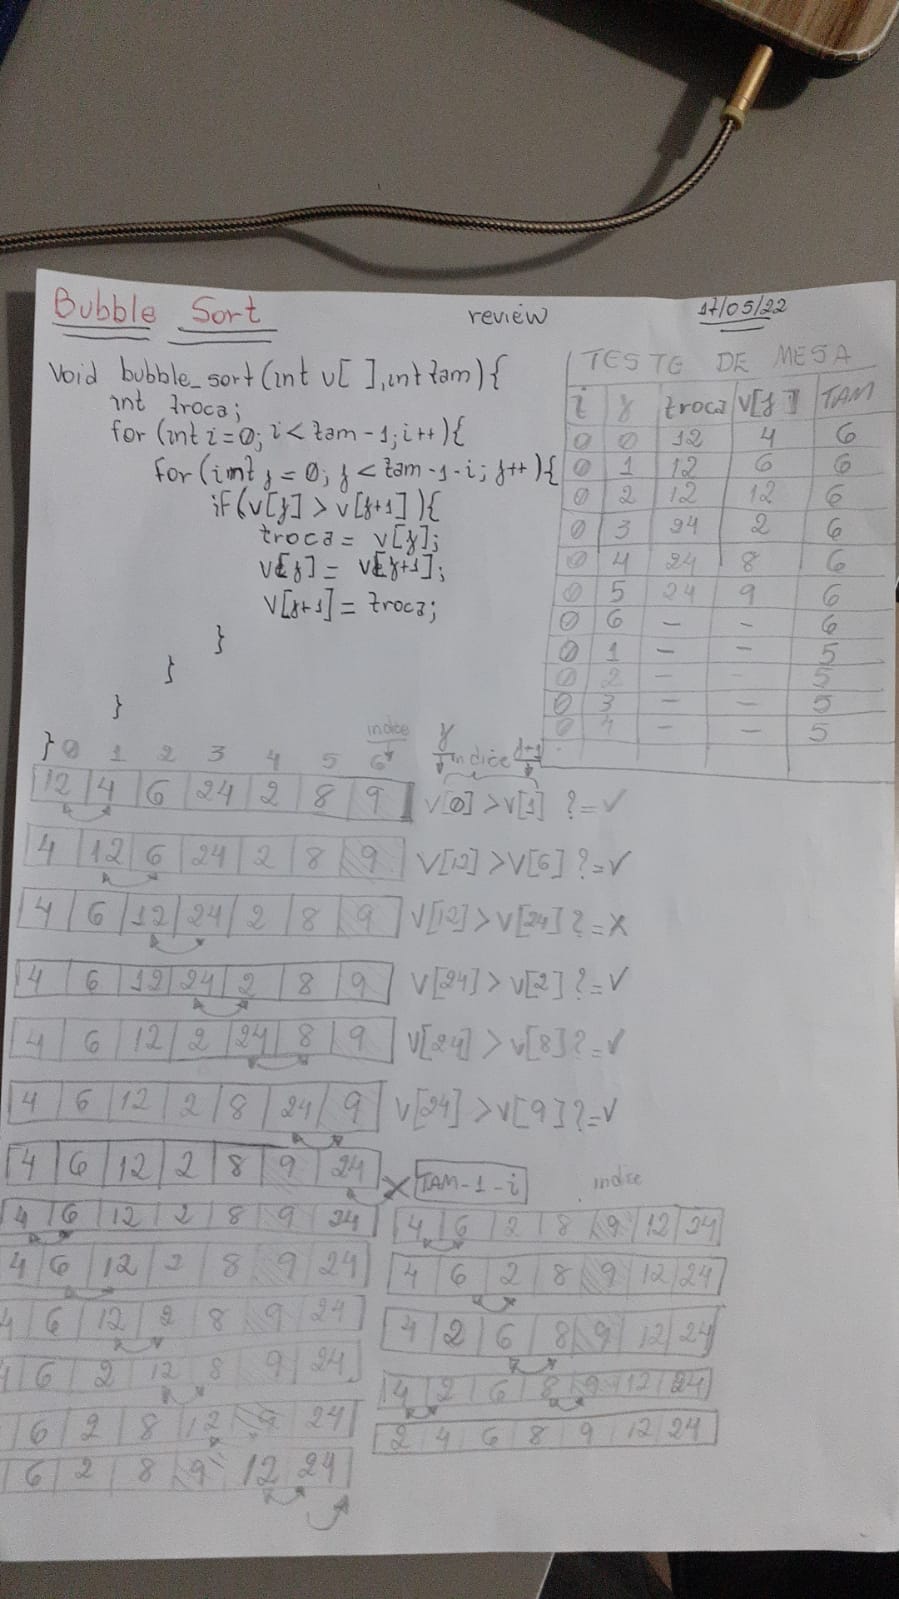 Bubble Sort review 17/05/22
Void bubble_sort(int v[ ], int tam){
int troca;
for (int i=0; i < tam-1; i++){
for (int j=0; j < tam-1-i; j++){
if (v[j] > v[j+1]){
troca = v[j];
v[j] = v[j+1];
v[j+1] = troca;
}
}
}
}
TESTE DE MESA
i j troca v[j] TAM
0 0 12 4 6
0 1 12 6 6
0 2 12 12 6
0 3 24 2 6
0 4 24 8 6
0 5 24 9 6
0 6 - - 6
0 1 - - 5
0 2 - - 5
0 3 - - 5
0 4 - - 5
indice j indice j+1
0 1 2 3 4 5 6
12 4 6 24 2 8 9 v[0] > v[1] ? = ✓
4 12 6 24 2 8 9 v[12] > v[6] ? = ✓
4 6 12 24 2 8 9 v[12] > v[24] ? = x
4 6 12 24 2 8 9 v[24] > v[2] ? = ✓
4 6 12 2 24 8 9 v[24] > v[8] ? = ✓
4 6 12 2 8 24 9 v[24] > v[9] ? = ✓
4 6 12 2 8 9 24 x TAM-1-i indice
4 6 12 2 8 9 24
4 6 12 2 8 9 24
4 6 12 2 8 9 24
4 6 2 12 8 9 24
6 2 8 12 9 24
6 2 8 9 12 24
4 6 2 8 9 12 24
4 6 2 8 9 12 24
4 2 6 8 9 12 24
4 2 6 8 9 12 24
2 4 6 8 9 12 24